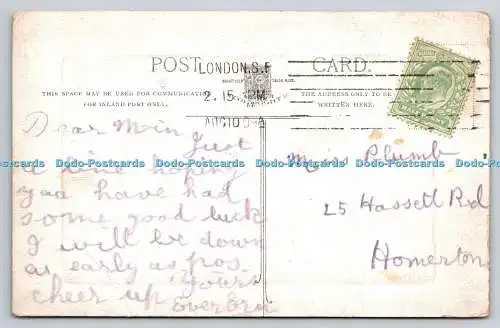 POST CARD.
LONDON. S.E
2.15 PM
AUG 10
THIS SPACE MAY BE USED FOR COMMUNICATION
FOR INLAND POST ONLY.
THE ADDRESS ONLY TO BE
WRITTEN HERE.
Dear Min Just
a line hoping
you have had
some good luck
I will be down
as early as pos.
cheer up Yours
Ever Ern
Miss Plumb
25 Hassett Rd
Homerton
Dodo-Postcards Dodo-Postcards Dodo-Postcards Dodo-Postcards Dodo-Postcards